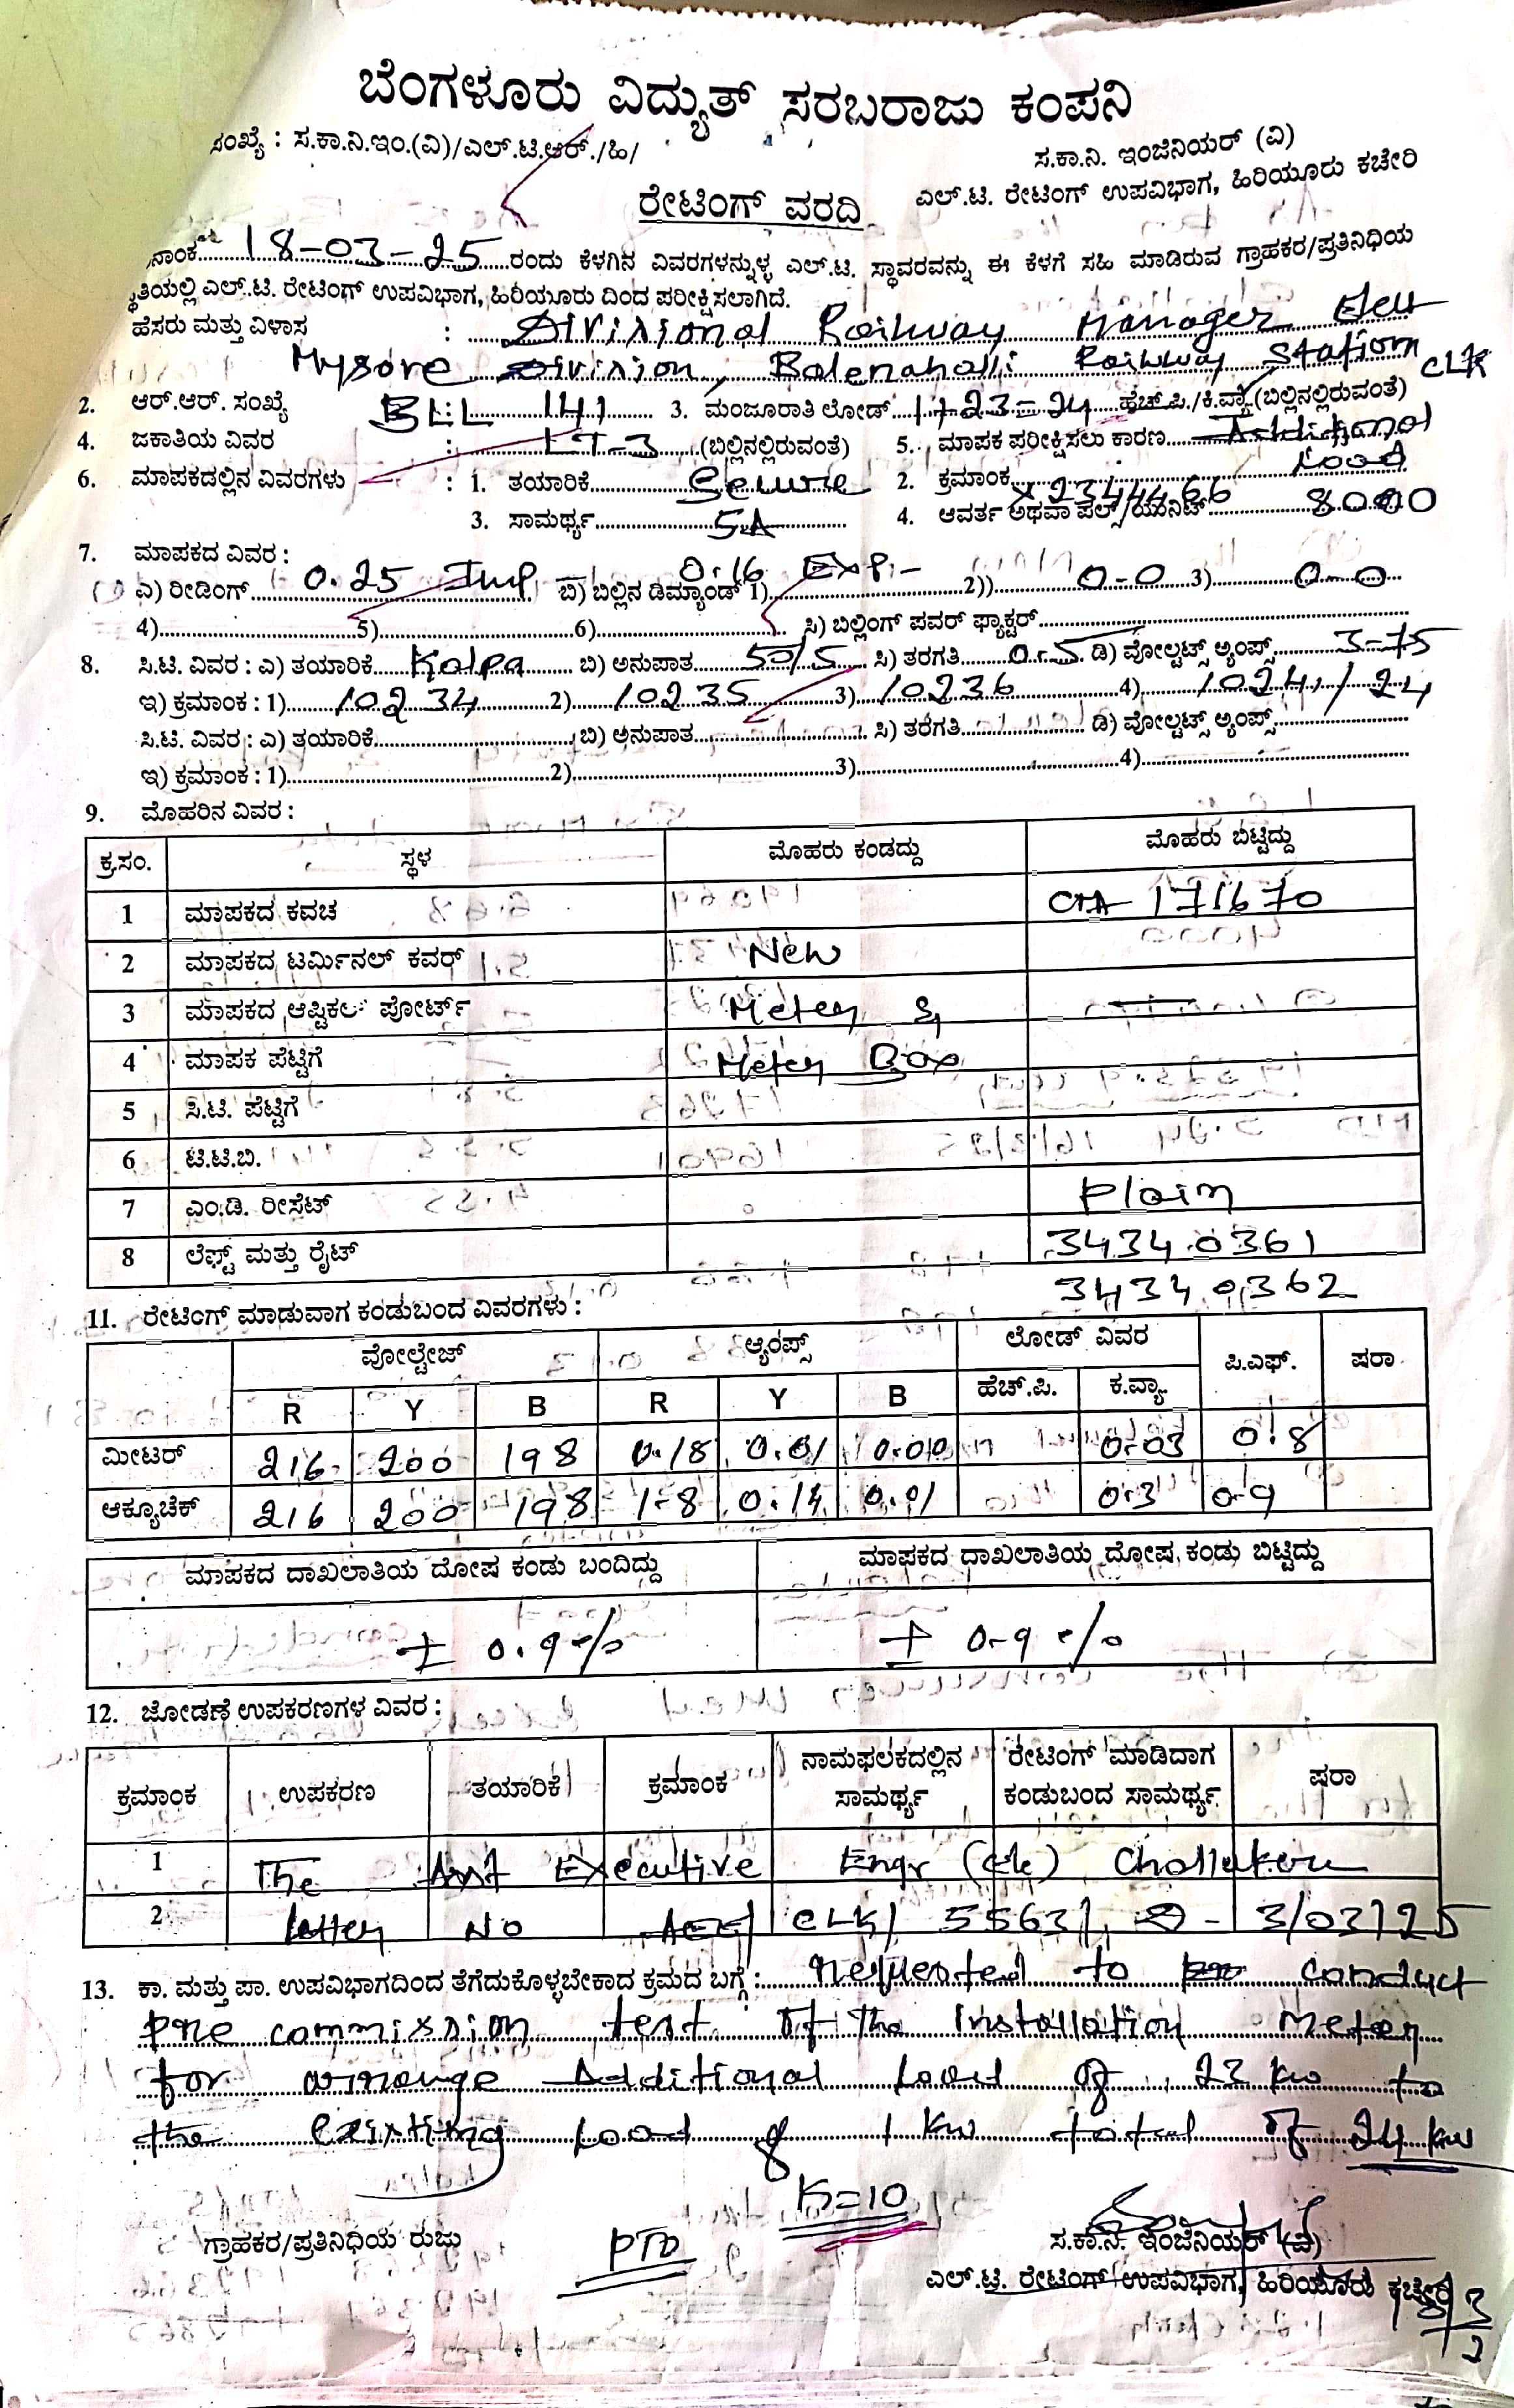 ಬೆಂಗಳೂರು ವಿದ್ಯುತ್ ಸರಬರಾಜು ಕಂಪನಿ
ಸಂಖ್ಯೆ : ಸ.ಕಾ.ನಿ.ಇಂ.(ವಿ)/ಎಲ್.ಟಿ.ಆರ್./ಹಿ/
ಸ.ಕಾ.ನಿ. ಇಂಜಿನಿಯರ್ (ವಿ)
ರೇಟಿಂಗ್ ವರದಿ
ಎಲ್.ಟಿ. ರೇಟಿಂಗ್ ಉಪವಿಭಾಗ, ಹಿರಿಯೂರು ಕಚೇರಿ
ನಾಂಕ 18-03-25 ರಂದು ಕೆಳಗಿನ ವಿವರಗಳನ್ನುಳ್ಳ ಎಲ್.ಟಿ. ಸ್ಥಾವರವನ್ನು ಈ ಕೆಳಗೆ ಸಹಿ ಮಾಡಿರುವ ಗ್ರಾಹಕರ/ಪ್ರತಿನಿಧಿಯ
ತಿಯಲ್ಲಿ ಎಲ್.ಟಿ. ರೇಟಿಂಗ್ ಉಪವಿಭಾಗ, ಹಿರಿಯೂರು ದಿಂದ ಪರೀಕ್ಷಿಸಲಾಗಿದೆ.
ಹೆಸರು ಮತ್ತು ವಿಳಾಸ : Divisional Railway Manager Elect
Mysore Division, Balenahalli Railway Station CLK
2. ಆರ್.ಆರ್. ಸಂಖ್ಯೆ : BLL 141 3. ಮಂಜೂರಾತಿ ಲೋಡ್ 1+23=24 ಹೆಚ್.ಪಿ./ಕಿ.ವ್ಯಾ (ಬಿಲ್ಲಿನಲ್ಲಿರುವಂತೆ)
4. ಜಕಾತಿಯ ವಿವರ : LT-3 (ಬಿಲ್ಲಿನಲ್ಲಿರುವಂತೆ) 5. ಮಾಪಕ ಪರೀಕ್ಷಿಸಲು ಕಾರಣ Additional Load
6. ಮಾಪಕದಲ್ಲಿನ ವಿವರಗಳು : 1. ತಯಾರಿಕೆ Secure 2. ಕ್ರಮಾಂಕ X2344466
3. ಸಾಮರ್ಥ್ಯ 5A 4. ಆವರ್ತ ಅಥವಾ ಪಲ್ಸ್/ಯುನಿಟ್ 8000
7. ಮಾಪಕದ ವಿವರ :
ಎ) ರೀಡಿಂಗ್ 0.25 Imp 0.16 Exp.- ಬಿ) ಬಿಲ್ಲಿನ ಡಿಮ್ಯಾಂಡ್ 1) 2)) 0-0 3) 0-0
4) 5) 6) ಸಿ) ಬಿಲ್ಲಿಂಗ್ ಪವರ್ ಫ್ಯಾಕ್ಟರ್
8. ಸಿ.ಟಿ. ವಿವರ : ಎ) ತಯಾರಿಕೆ Kalpa ಬಿ) ಅನುಪಾತ 50/5 ಸಿ) ತರಗತಿ 0.5 ಡಿ) ವೋಲ್ಟಟ್ಸ್ ಆ್ಯಂಪ್ಸ್ 3-75
ಇ) ಕ್ರಮಾಂಕ : 1) 10234 2) 10235 3) 10236 4) 10241/24
ಸಿ.ಟಿ. ವಿವರ : ಎ) ತಯಾರಿಕೆ ಬಿ) ಅನುಪಾತ ಸಿ) ತರಗತಿ ಡಿ) ವೋಲ್ಟಟ್ಸ್ ಆ್ಯಂಪ್ಸ್
ಇ) ಕ್ರಮಾಂಕ : 1) 2) 3) 4)
9. ಮೊಹರಿನ ವಿವರ :
ಕ್ರ.ಸಂ. ಸ್ಥಳ ಮೊಹರು ಕಂಡದ್ದು ಮೊಹರು ಬಿಟ್ಟಿದ್ದು
1 ಮಾಪಕದ ಕವಚ 171670
2 ಮಾಪಕದ ಟರ್ಮಿನಲ್ ಕವರ್ New
3 ಮಾಪಕದ ಆಪ್ಟಿಕಲ್ ಪೋರ್ಟ್ Meter &
4 ಮಾಪಕ ಪೆಟ್ಟಿಗೆ Meter Box
5 ಸಿ.ಟಿ. ಪೆಟ್ಟಿಗೆ
6 ಟಿ.ಟಿ.ಬಿ.
7 ಎಂ.ಡಿ. ರೀಸೆಟ್ Plain
8 ಲೆಫ್ಟ್ ಮತ್ತು ರೈಟ್ 34340361
34340362
11. ರೇಟಿಂಗ್ ಮಾಡುವಾಗ ಕಂಡುಬಂದ ವಿವರಗಳು :
ವೋಲ್ಟೇಜ್ ಆ್ಯಂಪ್ಸ್ ಲೋಡ್ ವಿವರ ಪಿ.ಎಫ್. ಷರಾ
R Y B R Y B ಹೆಚ್.ಪಿ. ಕಿ.ವ್ಯಾ
ಮೀಟರ್ 216 200 198 0.18 0.01 0.00 0.03 0.8
ಆಕ್ಯೂಚೆಕ್ 216 200 198 1.8 0.14 0.01 0.3 0.9
ಮಾಪಕದ ದಾಖಲಾತಿಯ ದೋಷ ಕಂಡು ಬಂದಿದ್ದು ಮಾಪಕದ ದಾಖಲಾತಿಯ ದೋಷ ಕಂಡು ಬಿಟ್ಟಿದ್ದು
± 0.9% ± 0.9%
12. ಜೋಡಣೆ ಉಪಕರಣಗಳ ವಿವರ :
ಕ್ರಮಾಂಕ ಉಪಕರಣ ತಯಾರಿಕೆ ಕ್ರಮಾಂಕ ನಾಮಫಲಕದಲ್ಲಿನ ಸಾಮರ್ಥ್ಯ ರೇಟಿಂಗ್ ಮಾಡಿದಾಗ ಕಂಡುಬಂದ ಸಾಮರ್ಥ್ಯ ಷರಾ
1 The Asst Executive Engr (ele) Challakere
2 letter No AEE/ CLK/ 5563/ 3/03/25
13. ಕಾ. ಮತ್ತು ಪಾ. ಉಪವಿಭಾಗದಿಂದ ತೆಗೆದುಕೊಳ್ಳಬೇಕಾದ ಕ್ರಮದ ಬಗ್ಗೆ : requested to conduct
pre commission test of the Installation Meter
for arrange Additional Load of 23 kw to
the existing Load of 1 kw total of 24 kw
K=10
ಗ್ರಾಹಕರ/ಪ್ರತಿನಿಧಿಯ ರುಜು PTO ಸ.ಕಾ.ನಿ. ಇಂಜಿನಿಯರ್ (ವಿ)
ಎಲ್.ಟಿ. ರೇಟಿಂಗ್ ಉಪವಿಭಾಗ, ಹಿರಿಯೂರು ಕಚೇರಿ